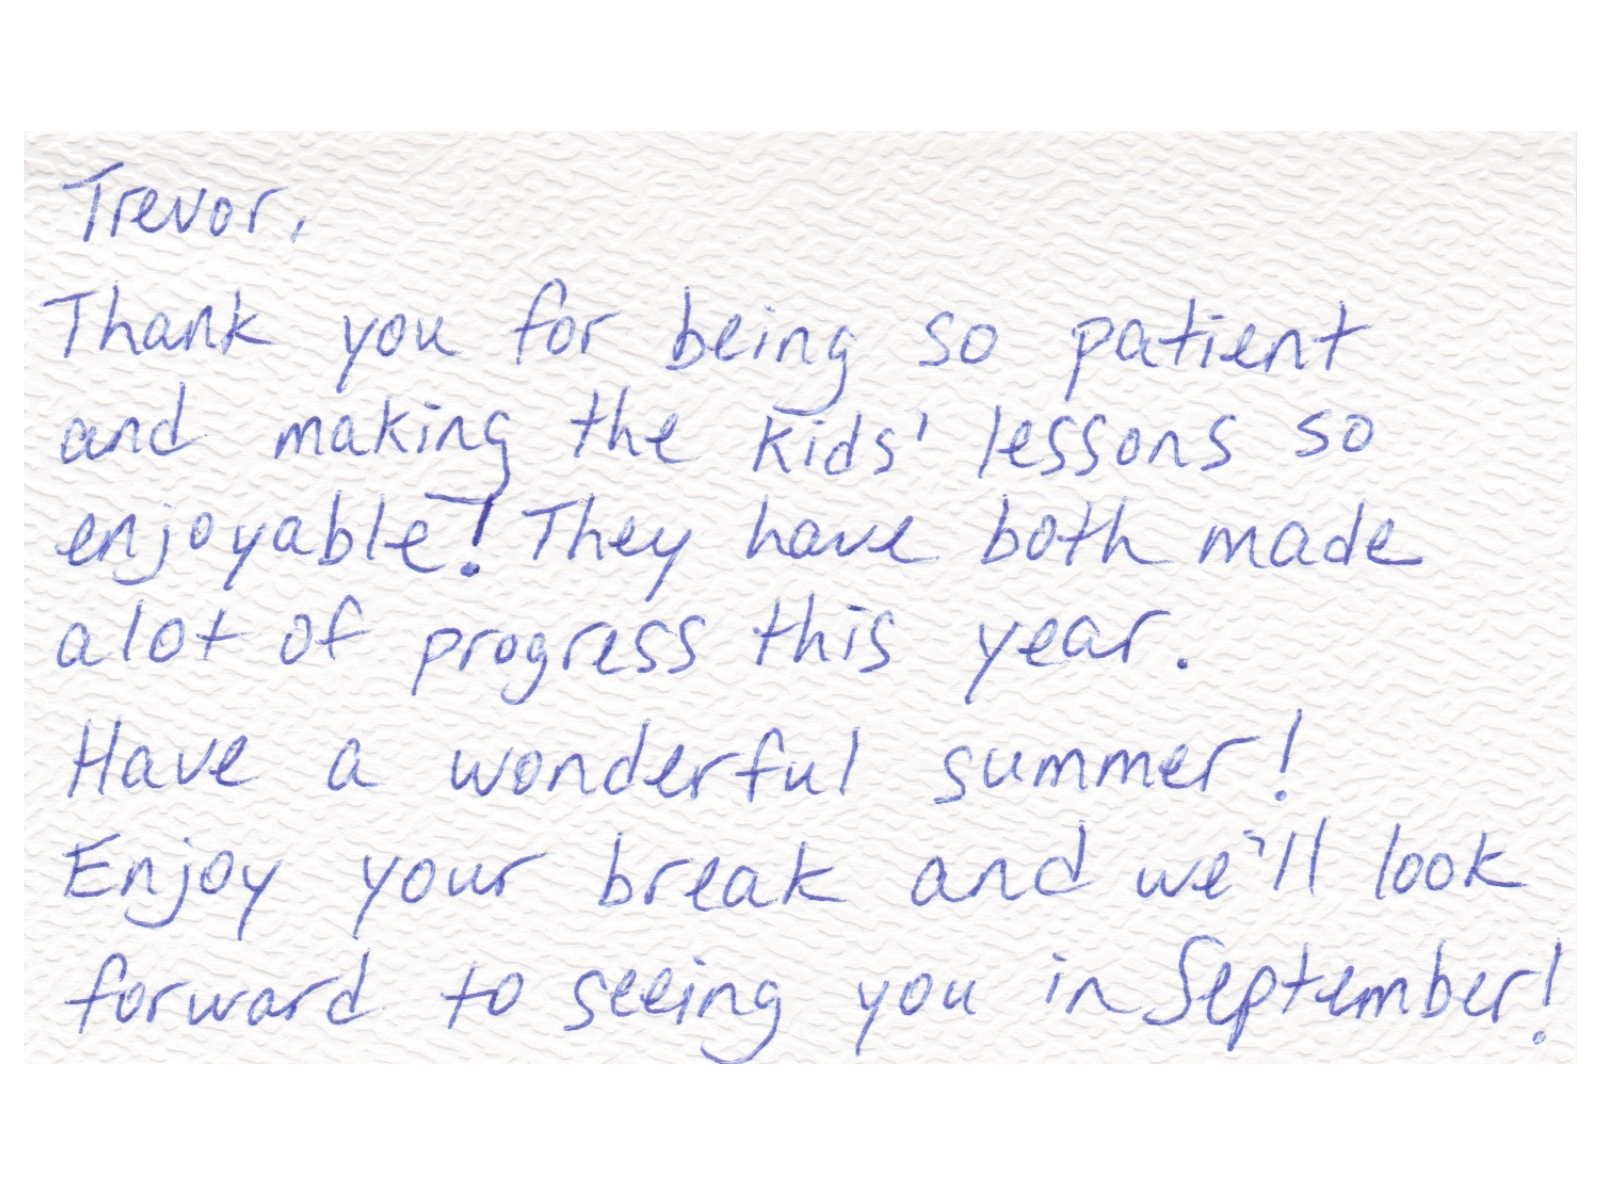 Trevor,
Thank you for being so patient
and making the kids' lessons so
enjoyable! They have both made
alot of progress this year.
Have a wonderful summer!
Enjoy your break and we'll look
forward to seeing you in September!